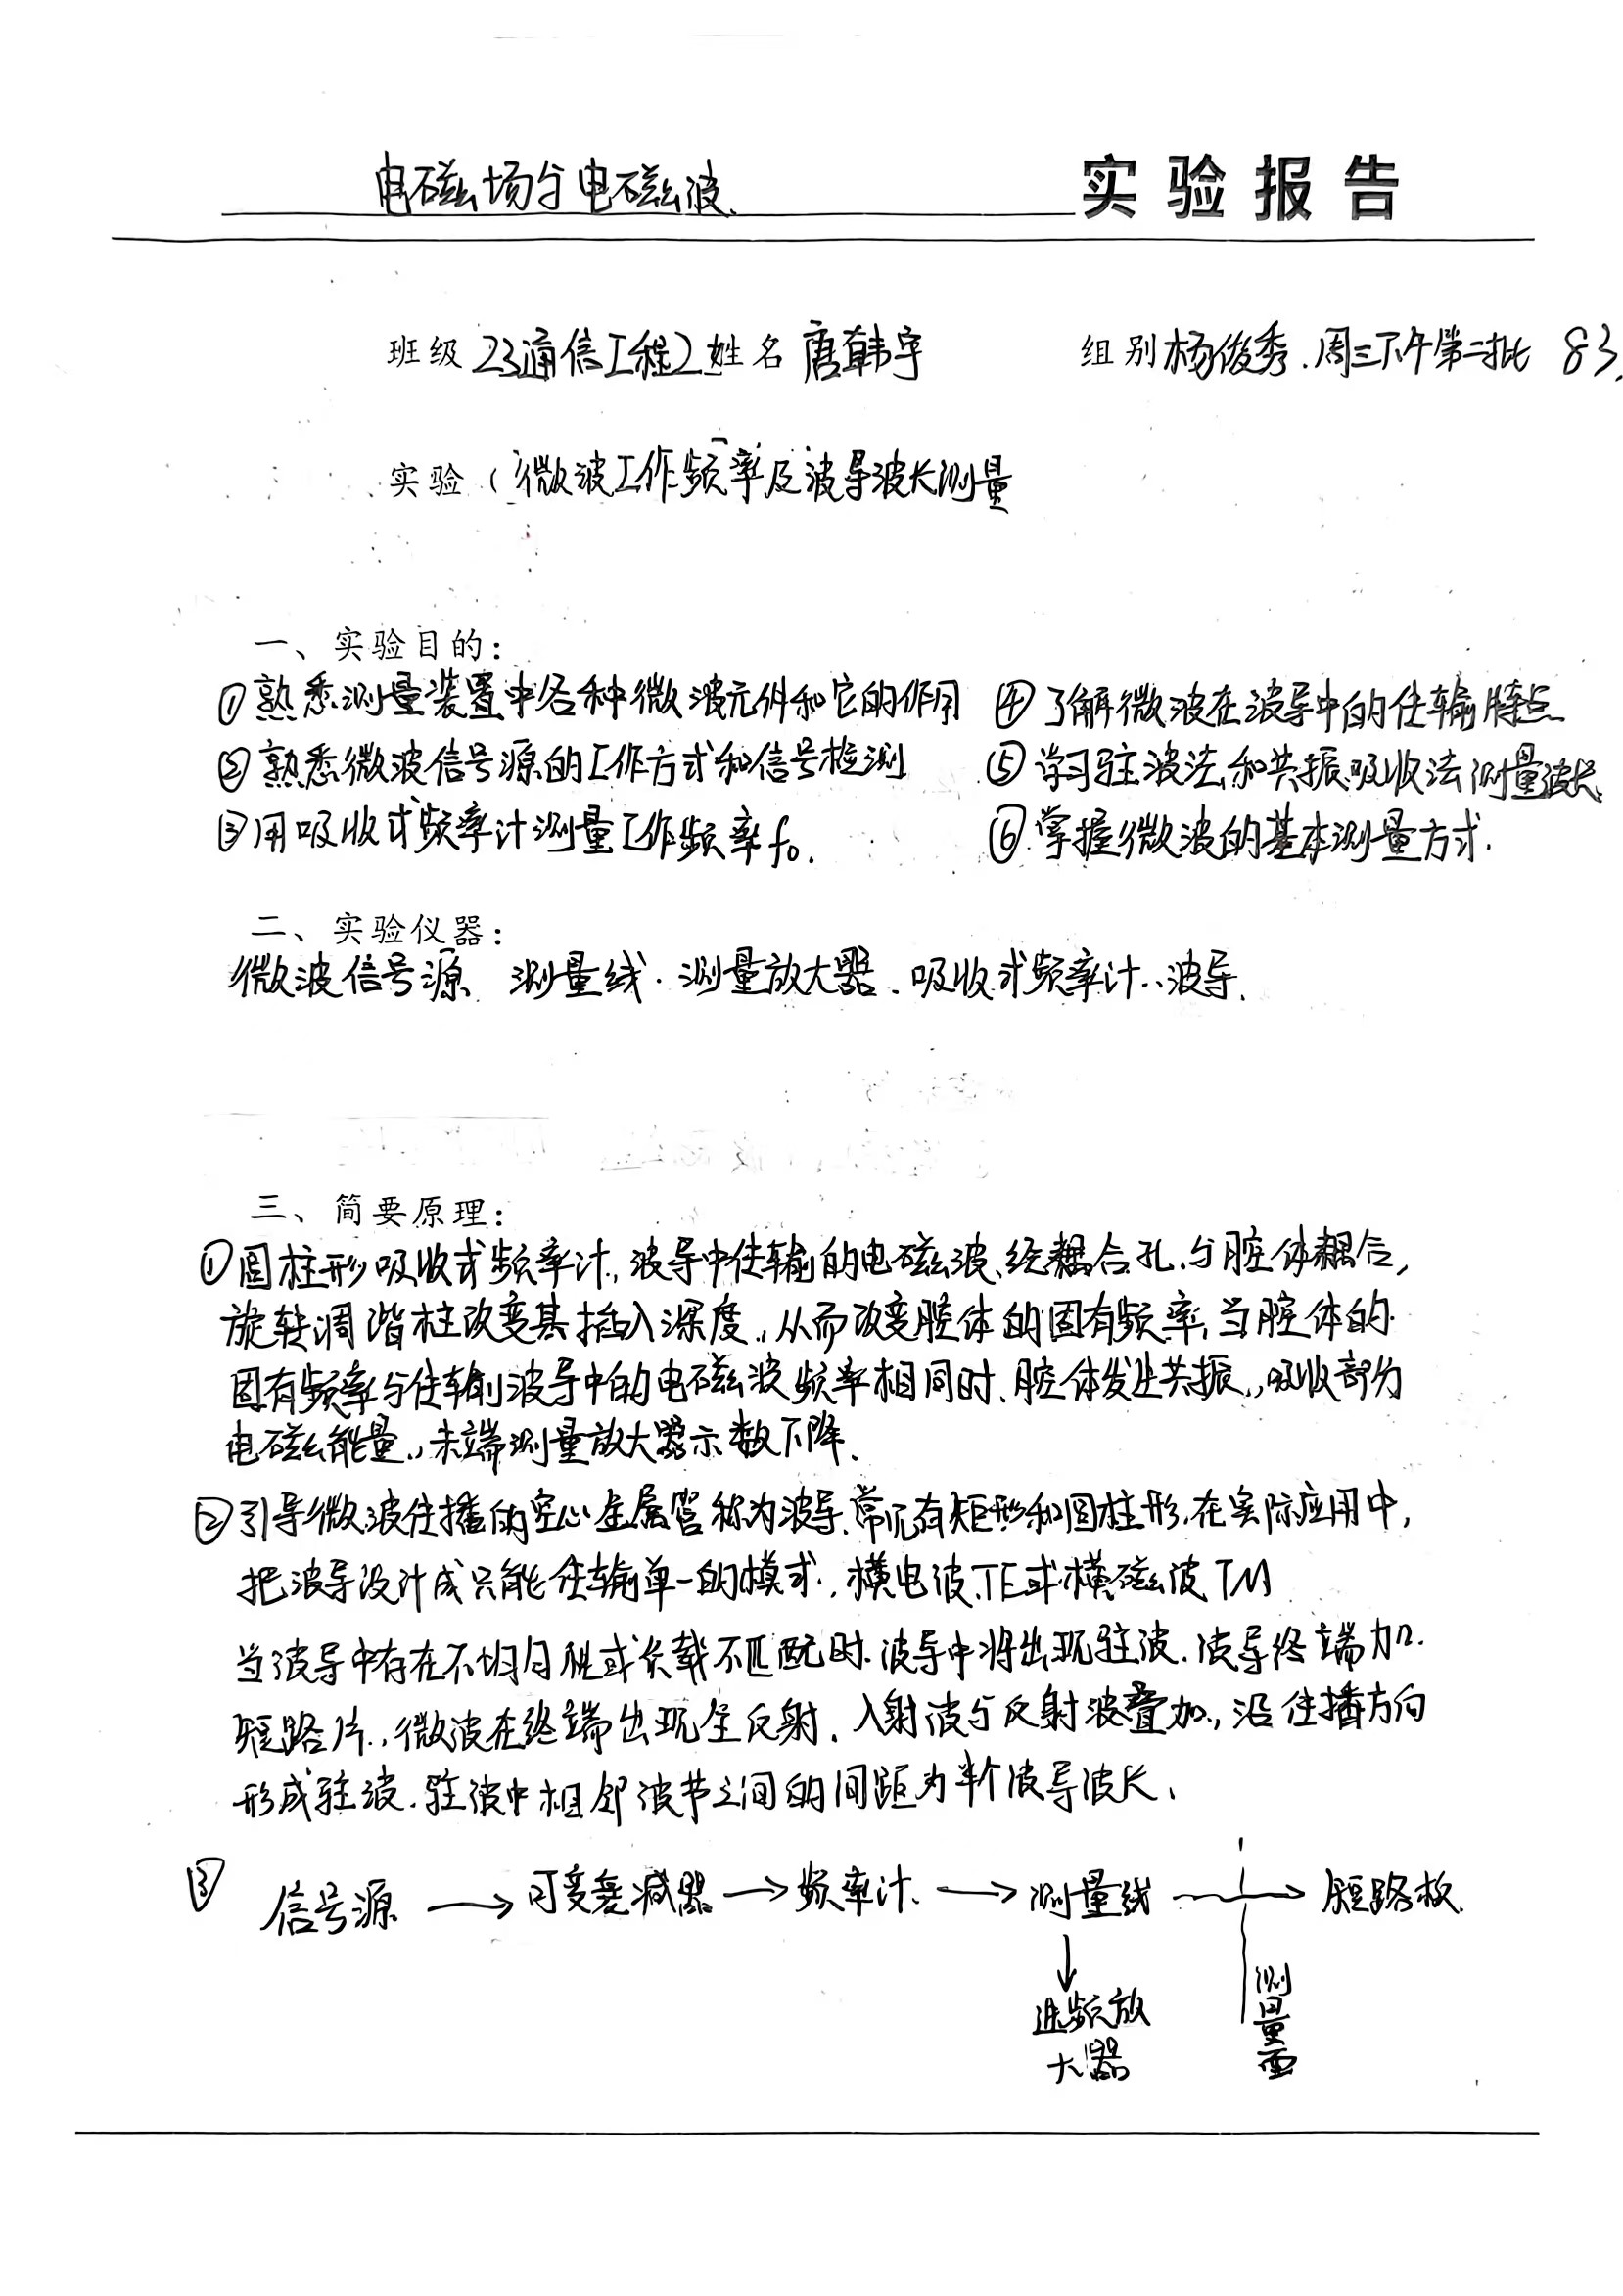 电磁场与电磁波 实验报告
班级 23通信工程2 姓名 唐韩宇 组别 杨俊秀.周三下午第二批 83.
实验(微波工作频率及波导波长测量
一、实验目的:
①熟悉测量装置中各种微波元件和它的作用 ④了解微波在波导中的传输特点
②熟悉微波信号源的工作方式和信号检测 ⑤学习驻波法和共振吸收法测量波长
③用吸收式频率计测量工作频率f₀. ⑥掌握微波的基本测量方式.
二、实验仪器:
微波信号源、测量线.测量放大器、吸收式频率计、波导、
三、简要原理:
①圆柱形吸收式频率计,波导中传输的电磁波、经耦合孔、与腔体耦合,
旋转调谐柱改变其插入深度,从而改变腔体的固有频率,当腔体的
固有频率与传输波导中的电磁波频率相同时、腔体发生共振,吸收部分
电磁能量,末端测量放大器示数下降、
②引导微波传播的空心金属管称为波导、常见有矩形和圆柱形,在实际应用中,
把波导设计成只能传输单一的模式,横电波TE或横磁波TM
当波导中存在不均匀性或负载不匹配时.波导中将出现驻波.波导终端加
短路片,微波在终端出现全反射.入射波与反射波叠加,沿传播方向
形成驻波.驻波中相邻波节之间的间距为半个波导波长、
③ 信号源 → 可变衰减器 → 频率计 → 测量线 → 短路板.
选频放
大器
测量面